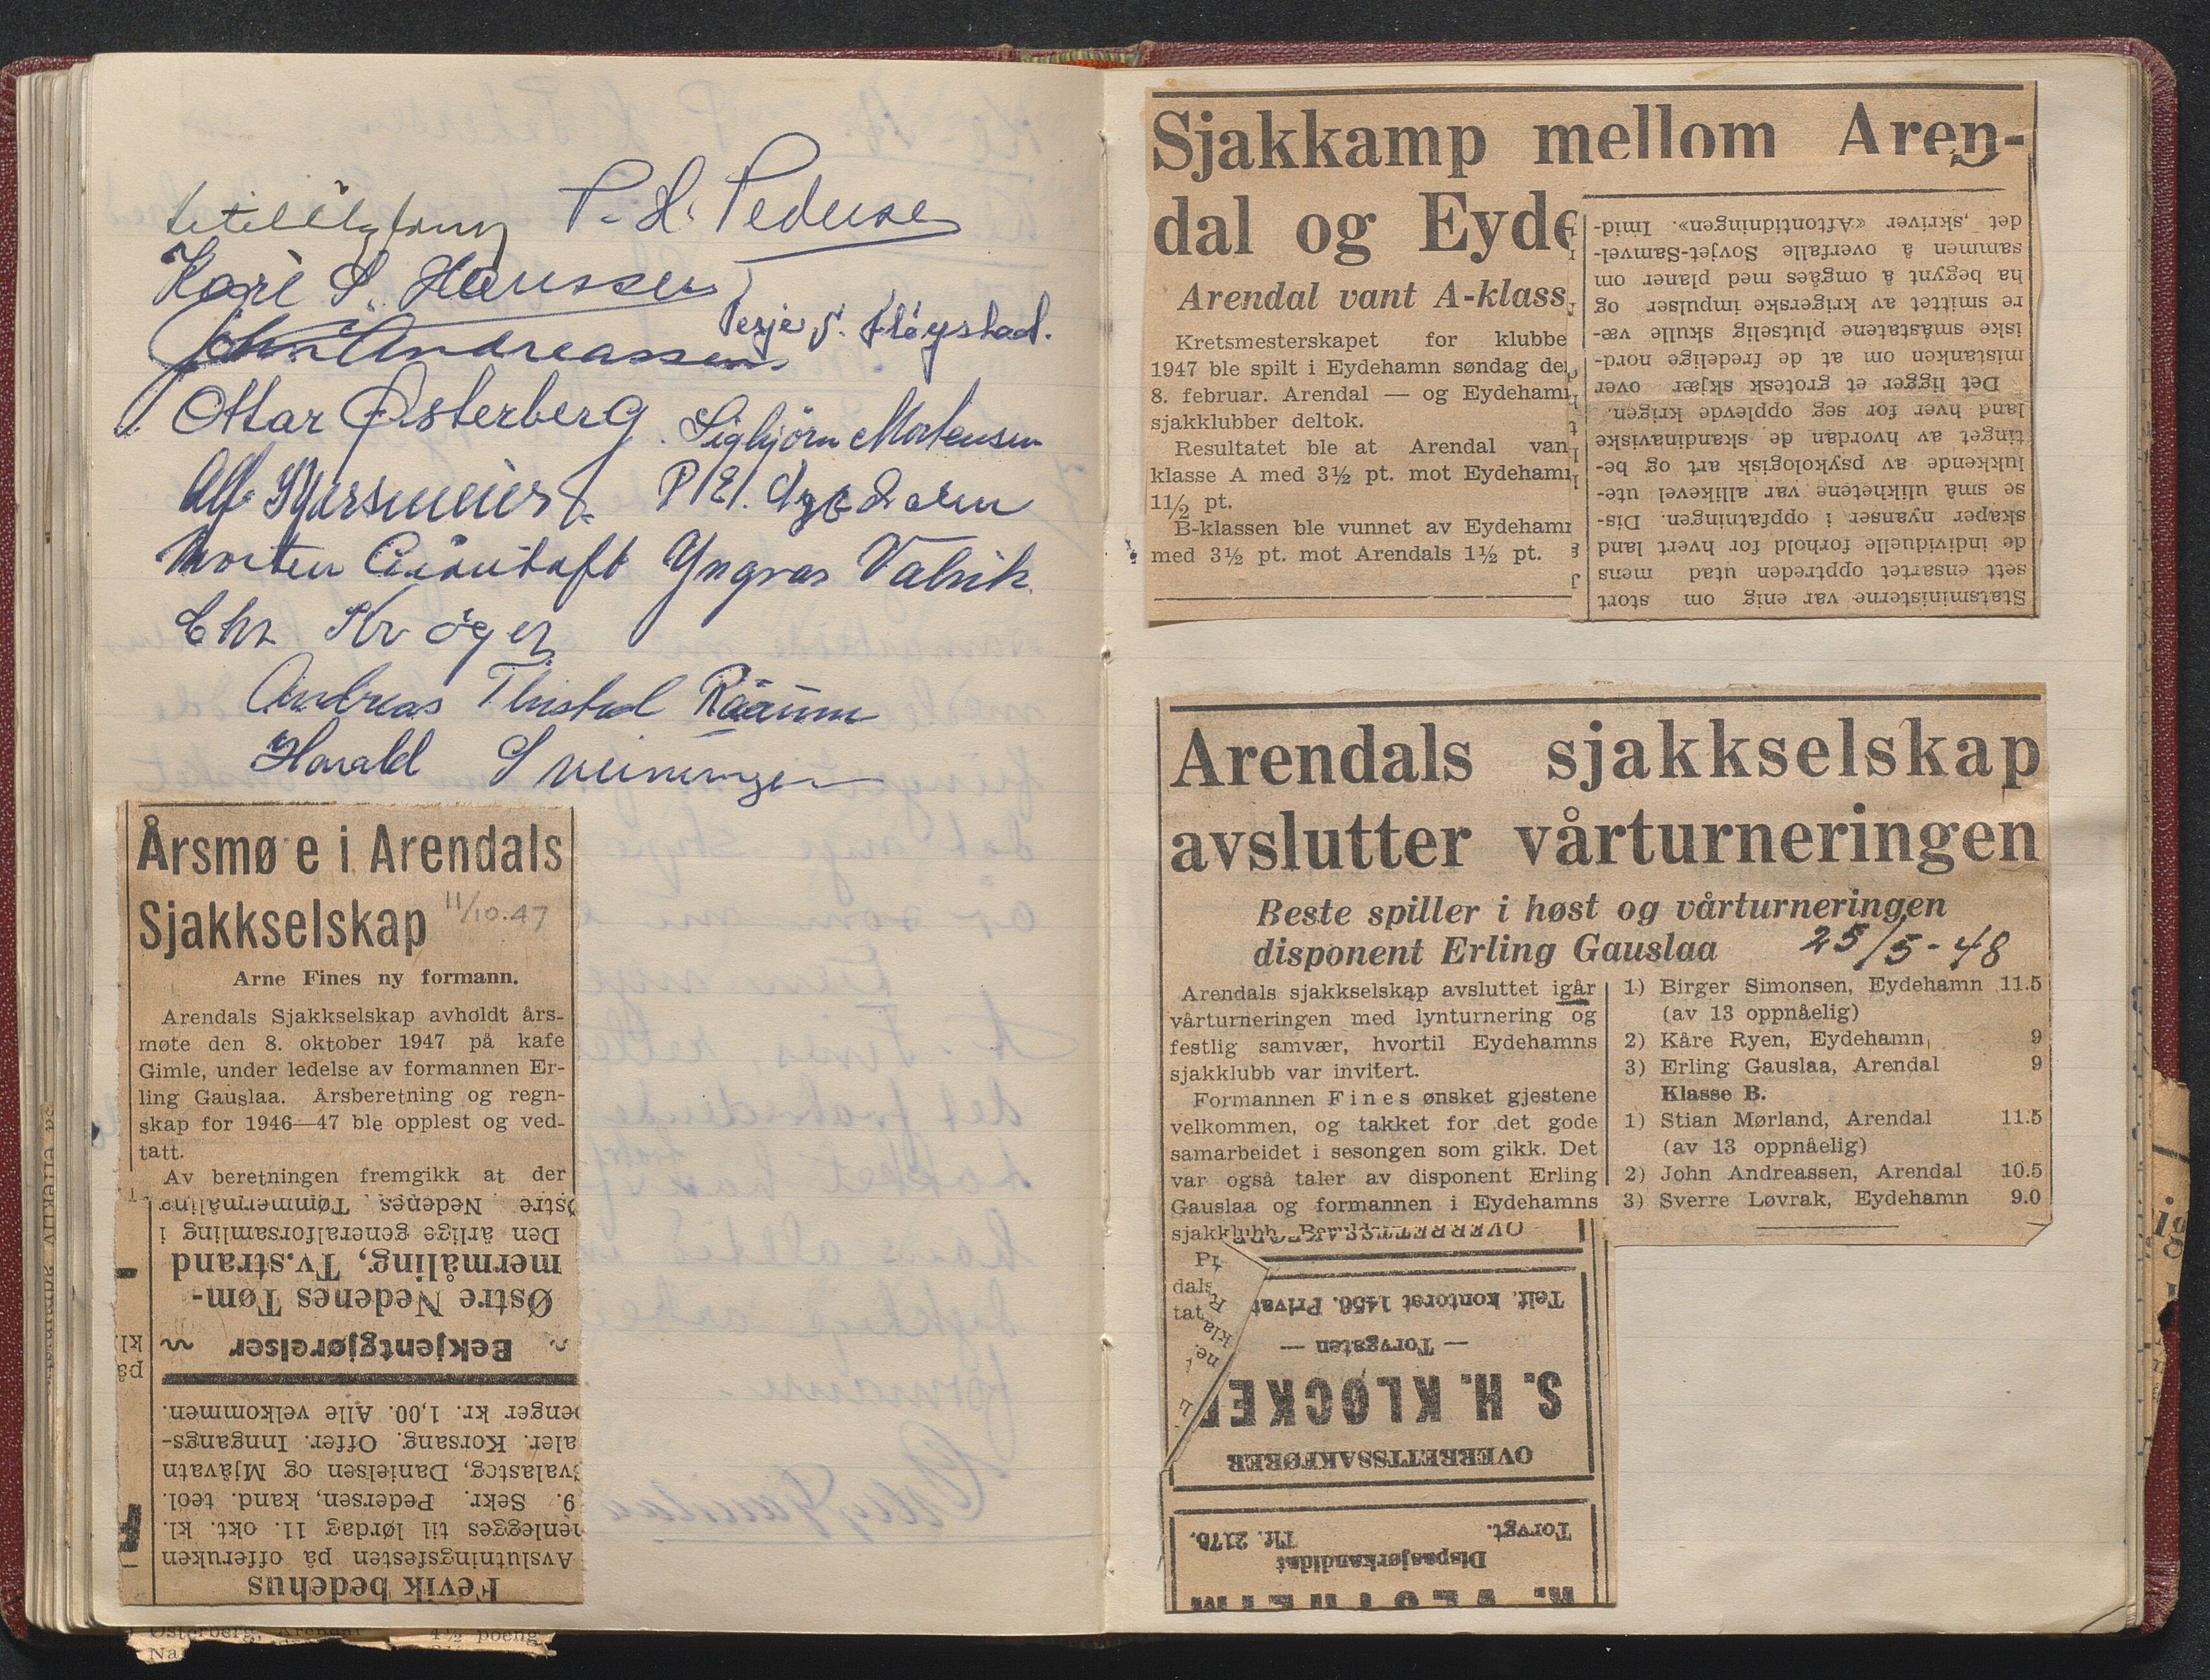 P. H. Pedersen
Kåre S. Hanssen
Terje S. Fløystad.
John Andreassen
Ottar Østerberg
Sigbjørn Mortensen
Alf
P. E.
Morten
Yngvar Valvik
Chr. Krøger
Andreas Raaum
Harald Sveinungsen
Årsmø e i Arendals
Sjakkselskap 11/10.47
Arne Fines ny formann.
Arendals Sjakkselskap avholdt års-
møte den 8. oktober 1947 på kafe
Gimle, under ledelse av formannen Er-
ling Gauslaa. Årsberetning og regn-
skap for 1946—47 ble opplest og ved-
tatt.
Av beretningen fremgikk at der
Østre Nedenes Tømmermåling
Den årlige generalforsamling i
mermåling, Tv.strand
Østre Nedenes Tøm-
Bekjentgjørelser
kl
på
penger kr. 1,00. Alle velkommen.
aler. Korsang. Offer. Inngangs-
Svalastog, Danielsen og Mjåvatn
9. Sekr. Pedersen, kand. teol.
menlegges til lørdag 11. okt. kl.
Avslutningsfesten på offeruken
Fevik bedehus
Østerberg, Arendal 4½ poeng
Na
Sjakkamp mellom Aren-
dal og Eyde
Arendal vant A-klass
Kretsmesterskapet for klubbe
1947 ble spilt i Eydehamn søndag de
8. februar. Arendal — og Eydeham
sjakklubber deltok.
Resultatet ble at Arendal van
klasse A med 3½ pt. mot Eydeham
11/2 pt.
B-klassen ble vunnet av Eydeham
med 3½ pt. mot Arendals 1½ pt.
Statsministerne var enig om stort
sett ensartet opptreden utad mens
de individuelle forhold for hvert land
skaper nyanser i oppfatningen. Dis-
se små ulikhetene var allikevel ute-
lukkende av psykologisk art og be-
tinget av hvordan de skandinaviske
land hver for seg opplevde krigen.
Det ligger et grotesk skjær over
mistanken om at de fredelige nord-
iske småstatene plutselig skulle væ-
re smittet av krigerske impulser og
ha begynt å omgåes med planer om
sammen å overfalle Sovjet-Samvel-
det ,skriver «Aftontidningen». Imid-
Arendals sjakkselskap
avslutter vårturneringen
Beste spiller i høst og vårturneringen
disponent Erling Gauslaa 25/5-48
Arendals sjakkselskap avsluttet igår
vårturneringen med lynturnering og
festlig samvær, hvortil Eydehamns
sjakklubb var invitert.
Formannen Fines ønsket gjestene
velkommen, og takket for det gode
samarbeidet i sesongen som gikk. Det
var også taler av disponent Erling
Gauslaa og formannen i Eydehamns
sjakklubb
1) Birger Simonsen, Eydehamn 11.5
(av 13 oppnåelig)
2) Kåre Ryen, Eydehamn 9
3) Erling Gauslaa, Arendal 9
Klasse B.
1) Stian Mørland, Arendal 11.5
(av 13 oppnåelig)
2) John Andreassen, Arendal 10.5
3) Sverre Løvrak, Eydehamn 9.0
OVERRETTSSAKFØRER
Pr
dals
tat
Telf. kontoret 1456. Privat
— Torvgaten —
S. H. KLØCKE
OVERRETTSSAKFØRER
Torvgt. Tlf. 2176.
Dispasjørkandidat